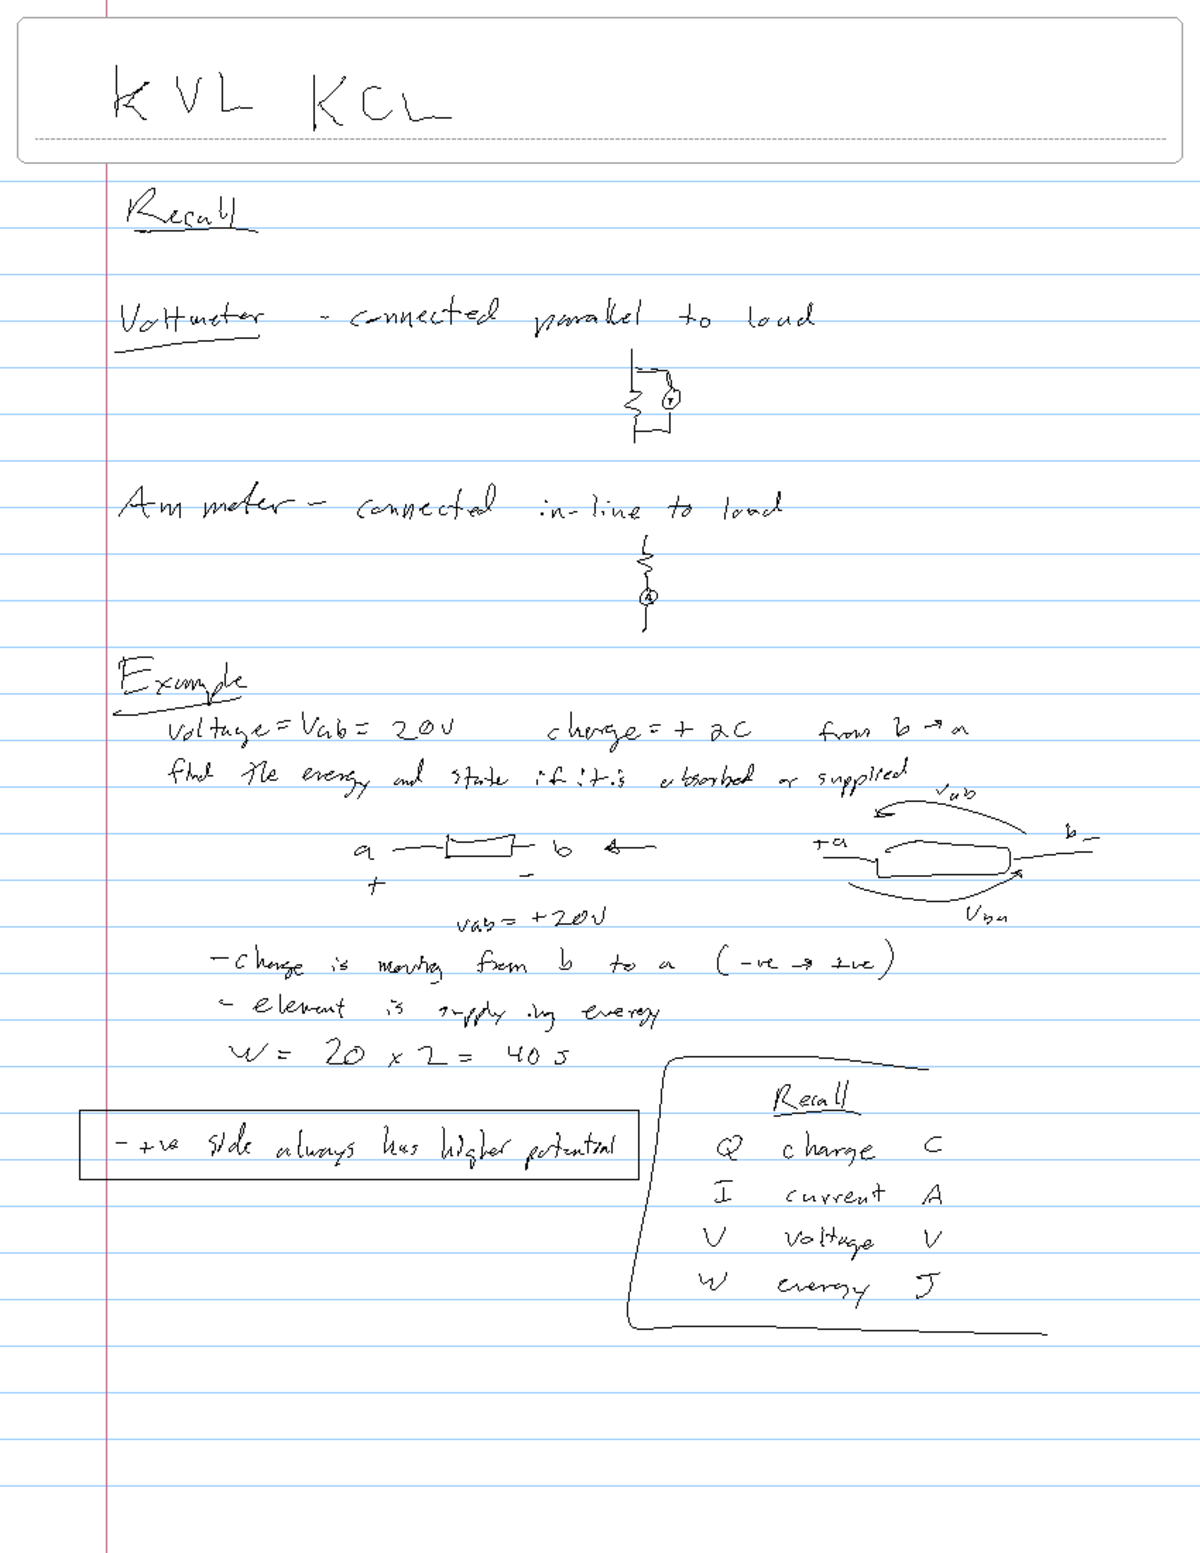 KVL KCL
Recall
Voltmeter - connected parallel to load
V
Ammeter - connected in-line to load
A
Example
Voltage = Vab = 20V charge = + 2C from b → a
find the energy and state if it is absorbed or supplied
Vab
a b +a b -
+ -
Vab = +20V Vba
- charge is moving from b to a (-ve → +ve)
- element is supplying energy
W = 20 x 2 = 40 J
Recall
- +ve side always has higher potential
Q charge C
I current A
V voltage V
W energy J